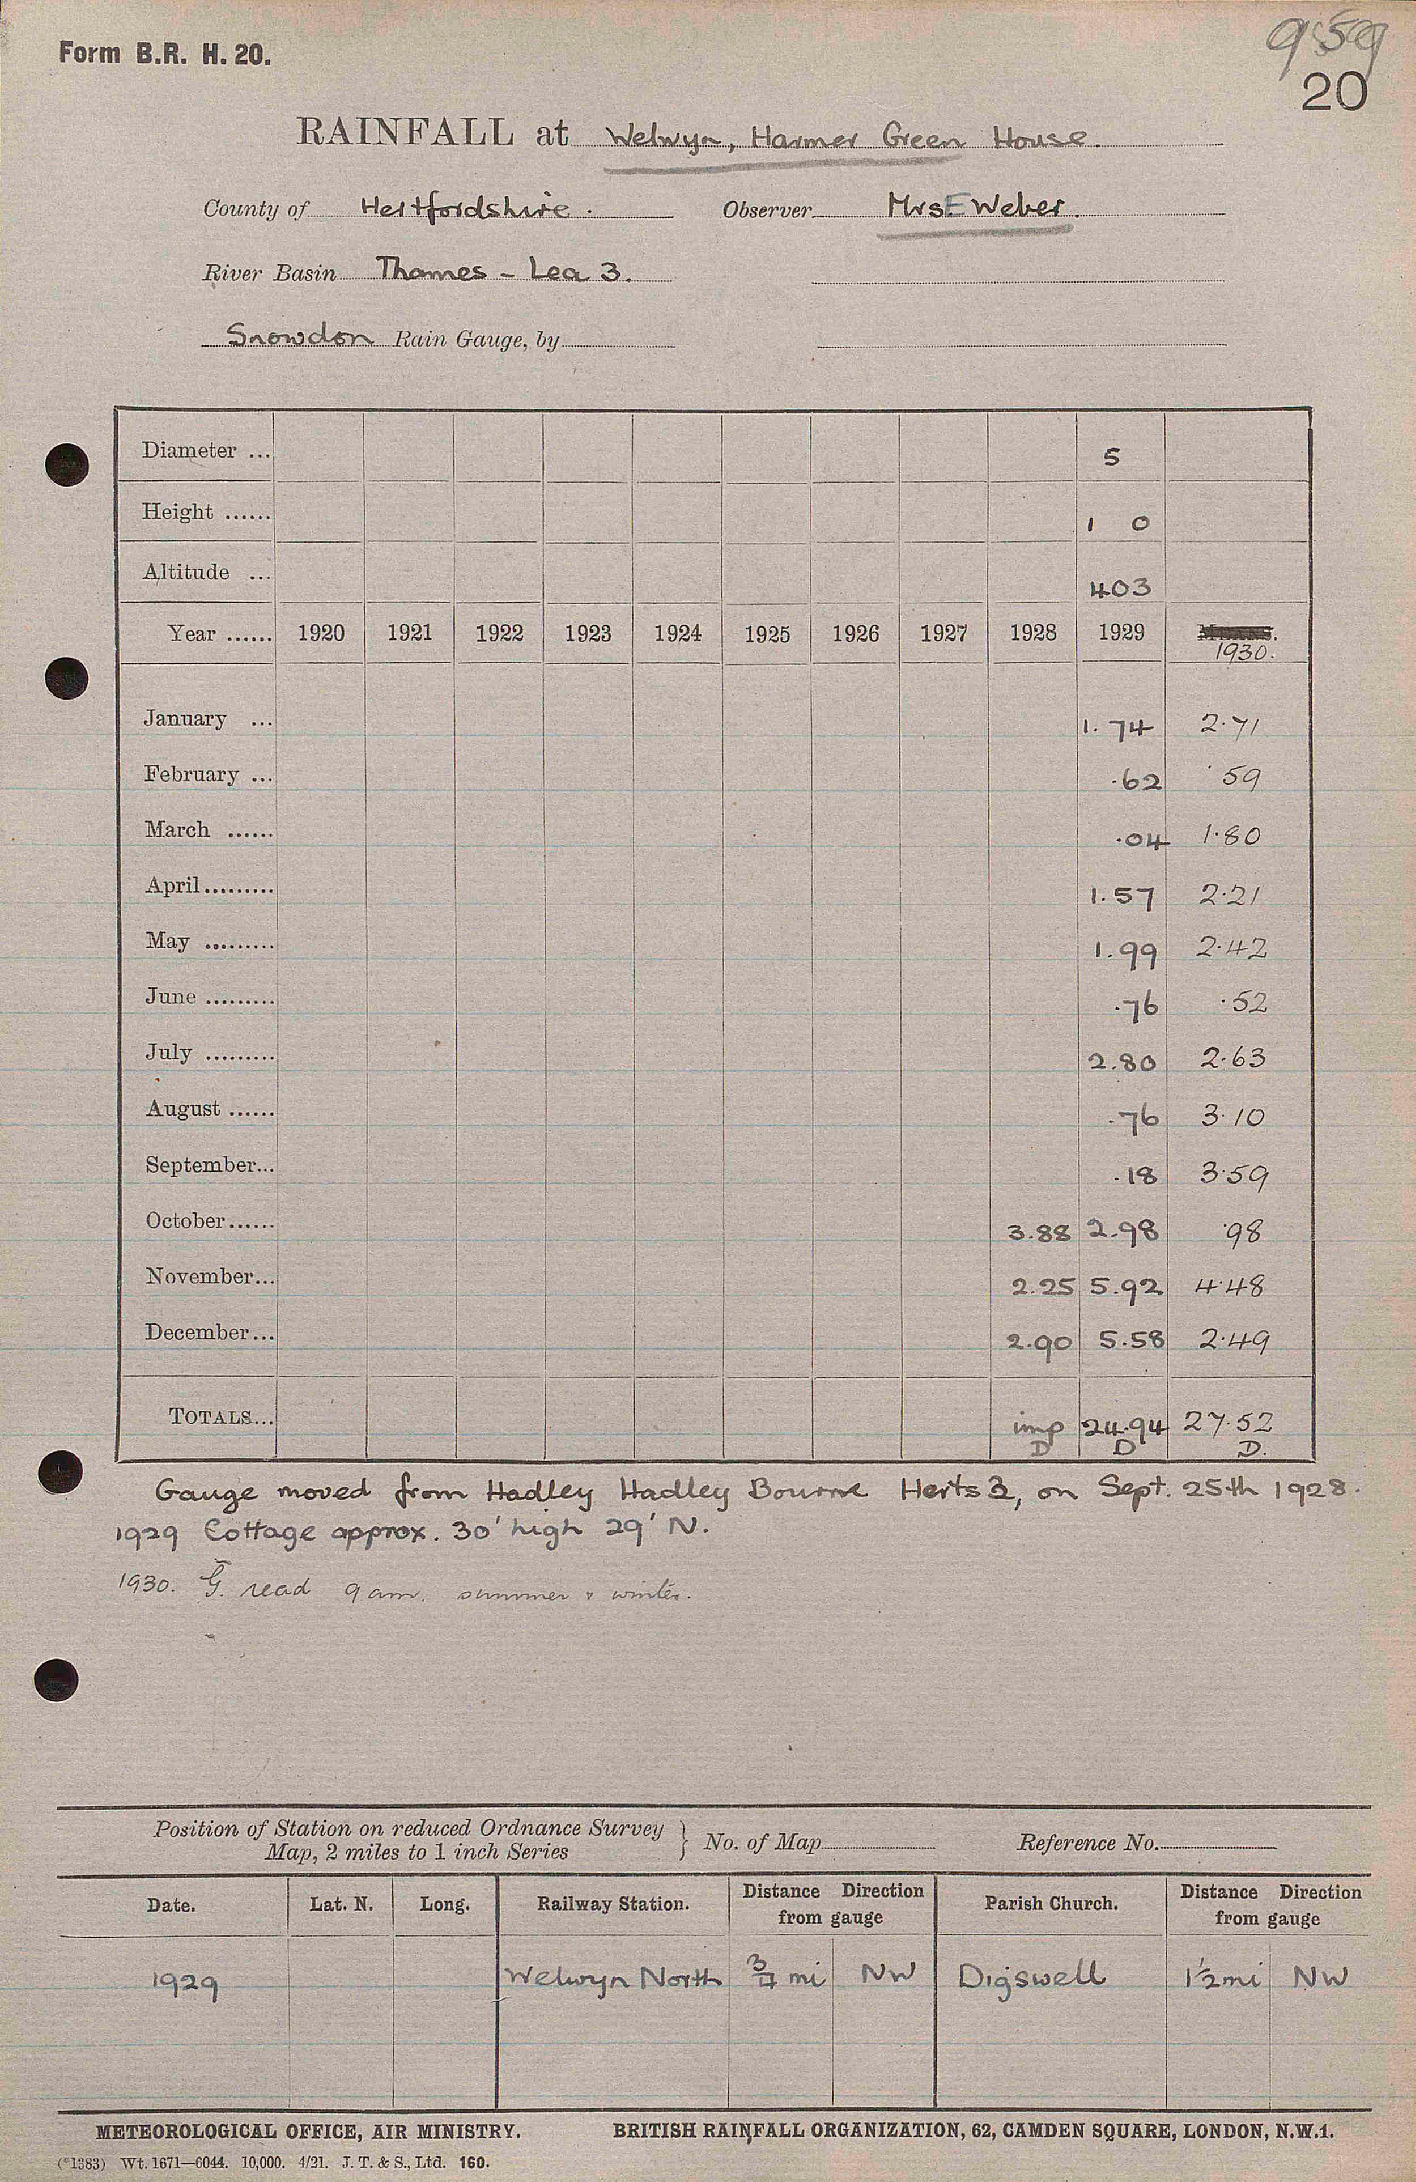 Form B.R. H. 20.
959
20
RAINFALL at Welwyn, Harmer Green House.
County of Hertfordshire. Observer Mrs E Weber.
River Basin Thames - Lea 3.
Snowdon Rain Gauge, by
Diameter ... 5
Height ...... 1 0
Altitude ... 403
Year ...... 1920 1921 1922 1923 1924 1925 1926 1927 1928 1929 MEANS.
1930.
January ... 1.74 2.71
February ... .62 .59
March ...... .04 1.80
April......... 1.57 2.21
May ......... 1.99 2.42
June ......... .76 .52
July ......... 2.80 2.63
August ...... .76 3.10
September... .18 3.59
October...... 3.88 2.98 .98
November... 2.25 5.92 4.48
December... 2.90 5.58 2.49
TOTALS... imp 24.94 27.52
D D D.
Gauge moved from Hadley Hadley Bourne Herts 2, on Sept. 25th 1928.
1929 Cottage approx. 30' high 29' N.
1930. G. read 9 am. summer & winter.
Position of Station on reduced Ordnance Survey
Map, 2 miles to 1 inch Series } No. of Map Reference No.
Date. Lat. N. Long. Railway Station. Distance Direction from gauge Parish Church. Distance Direction from gauge
1929 Welwyn North 3/4 mi NW Digswell 1 1/2 mi NW
METEOROLOGICAL OFFICE, AIR MINISTRY. BRITISH RAINFALL ORGANIZATION, 62, CAMDEN SQUARE, LONDON, N.W.1.
(*1383) Wt. 1671—6044. 10,000. 4/21. J. T. & S., Ltd. 160.